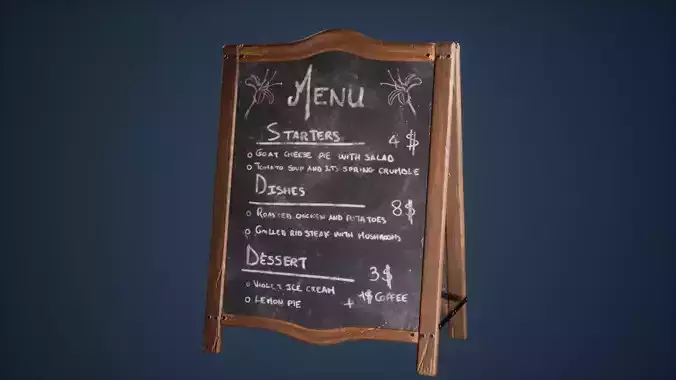 MENU
STARTERS 4 $
GOAT CHEESE PIE WITH SALAD
TOMATO SOUP AND ITS SPRING CRUMBLE
DISHES
ROASTED CHICKEN AND POTATOES 8 $
GRILLED RIB STEAK WITH MUSHROOMS
DESSERT 3 $
VIOLET ICE CREAM
LEMON PIE + 1$ COFFEE